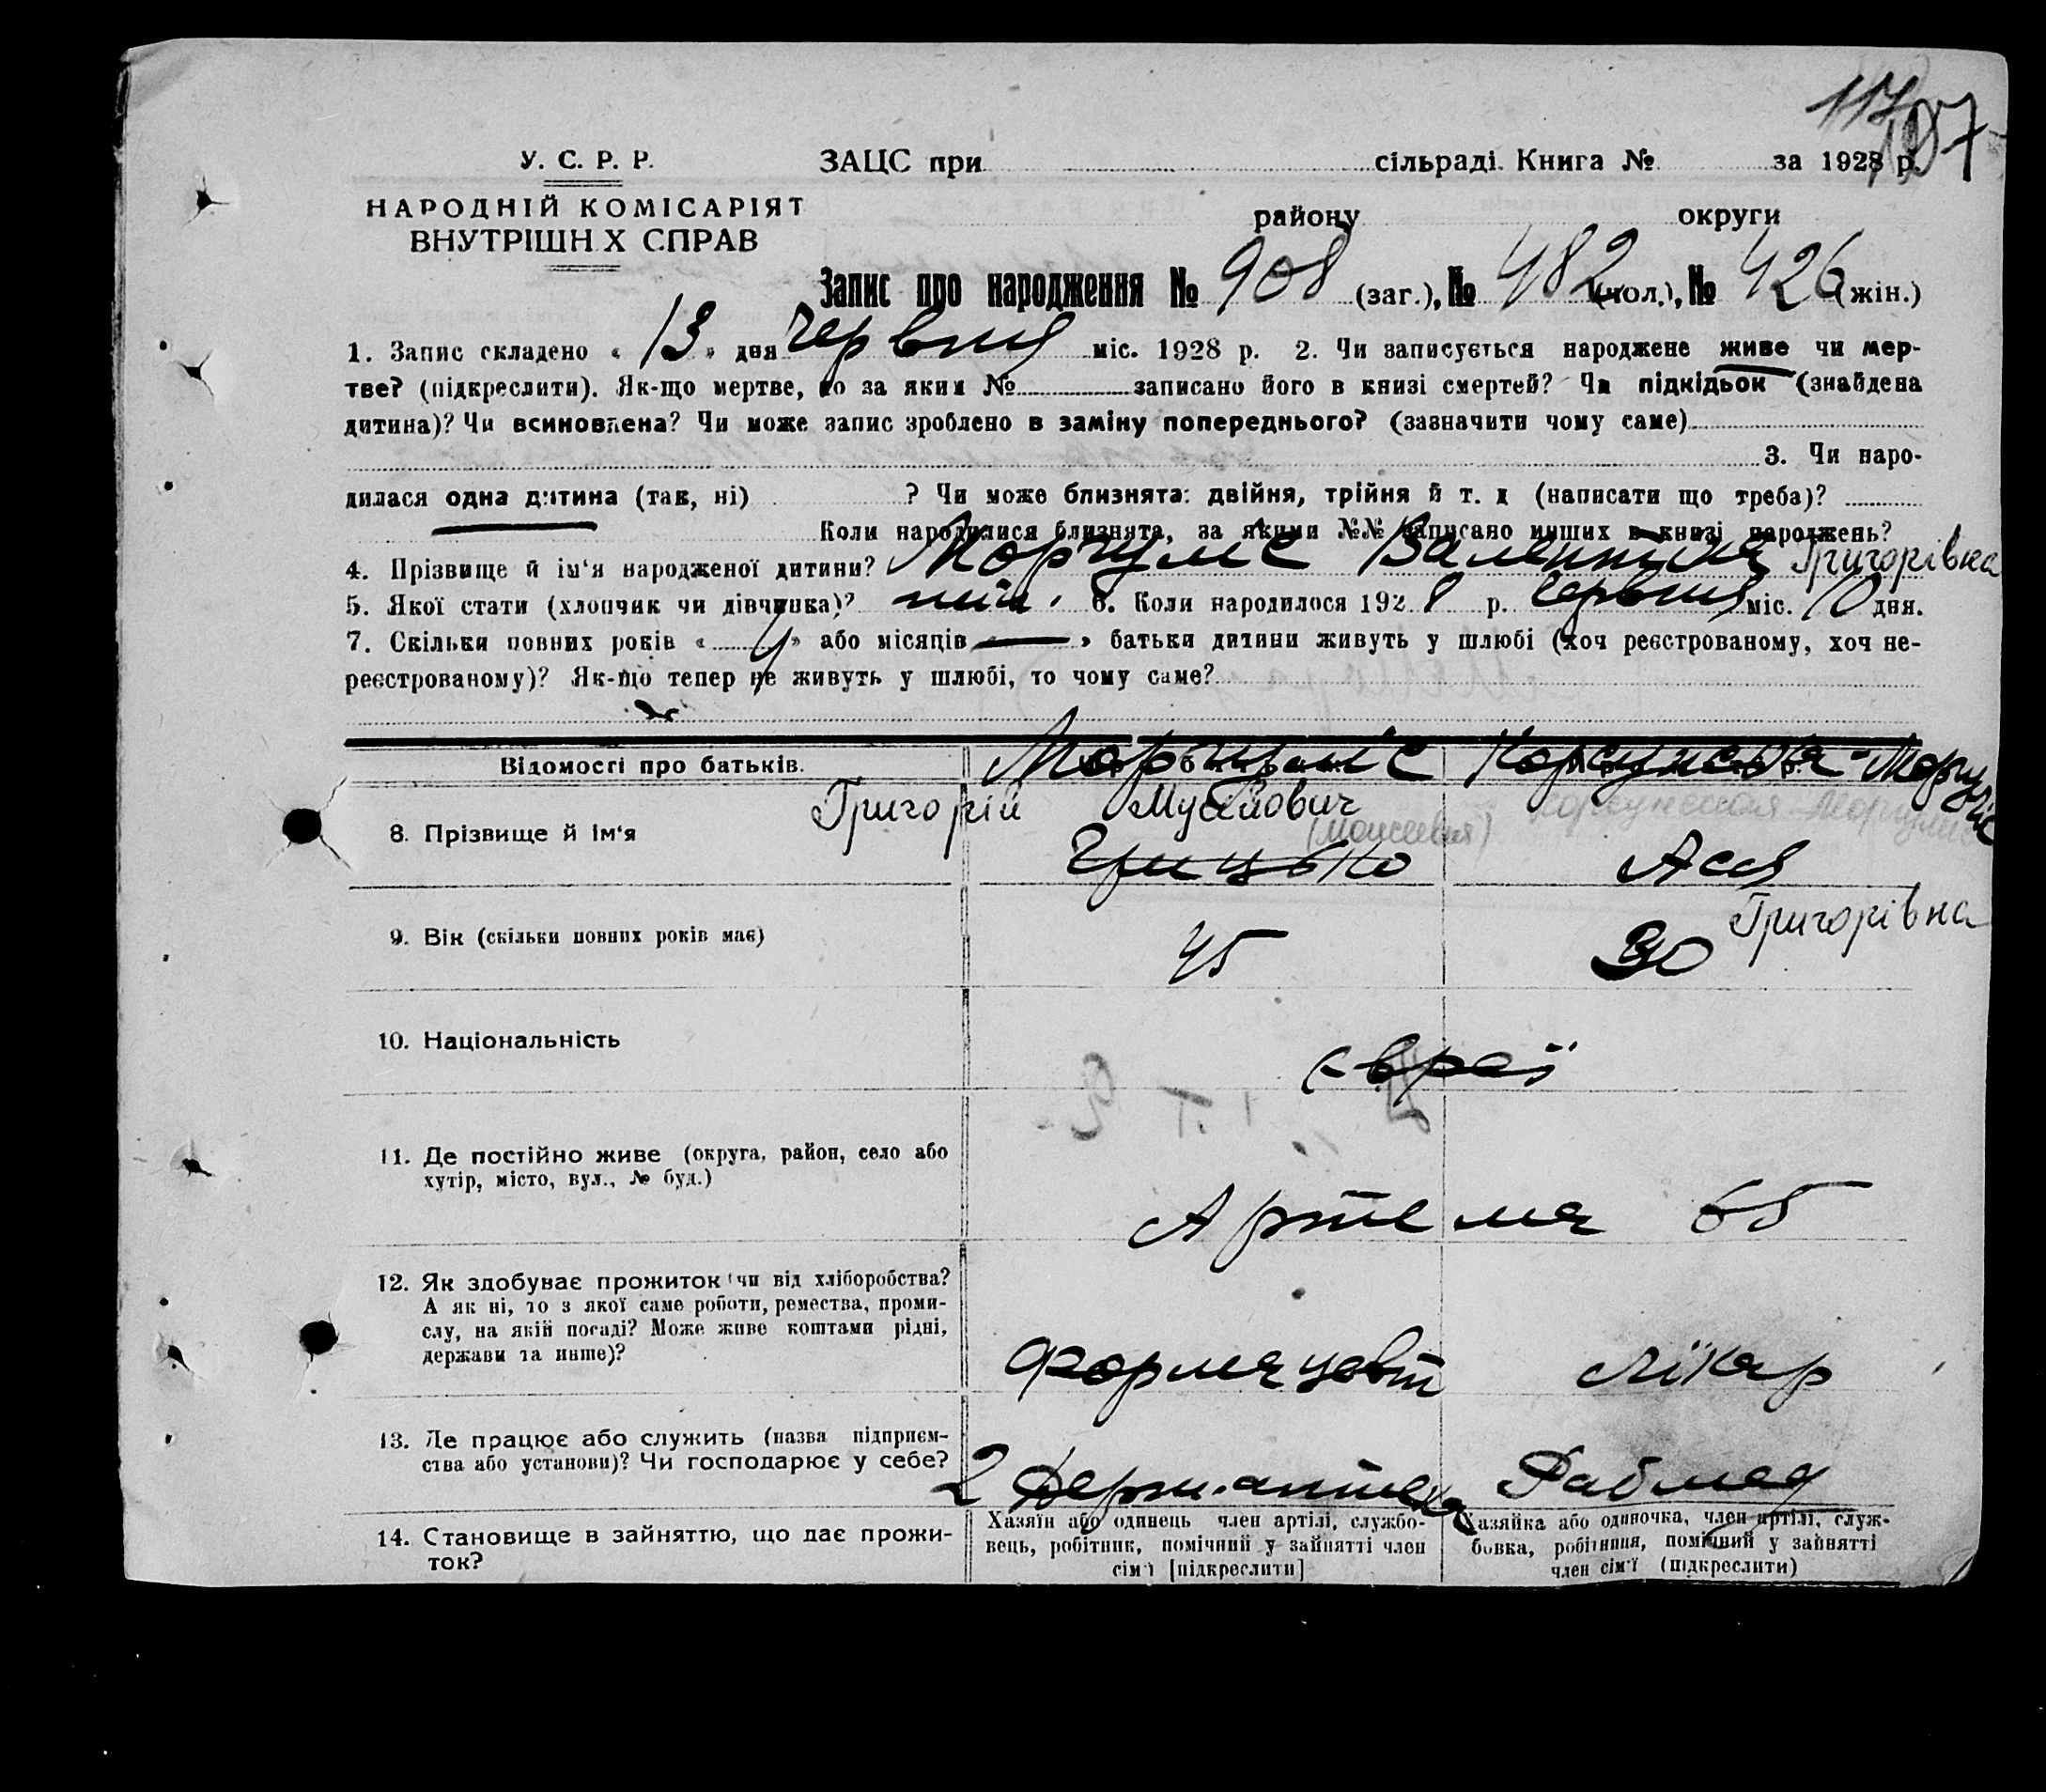 117
У. С. Р. Р.
ЗАЦС при сільраді. Книга № за 1928 р.
НАРОДНІЙ КОМІСАРІЯТ
ВНУТРІШН Х СПРАВ
району округи
Запис про народження № 908 (заг.), № 482 (чол.), № 426 (жін.)
1. Запис складено « 13 » дня червня міс. 1928 р. 2. Чи записується народжене живе чи мер-
тве? (підкреслити). Як-що мертве, то за яким № записано його в книзі смертей? Чи підкідьок (знайдена
дитина)? Чи всиновлена? Чи може запис зроблено в заміну попереднього? (зазначити чому саме)
3. Чи наро-
дилася одна дитина (так, ні) ? Чи може близнята: двійня, трійня й т. д (написати що треба)?
Коли народилися близнята, за якими №№ записано инших в книзі народжень?
4. Прізвище й ім'я народженої дитини? Моргуліс Валентина Григорівна
5. Якої стати (хлопчик чи дівчинка)? 6. Коли народилося 1928 р. червня міс. 10 дня.
7. Скільки повних років « 4 » або місяців « — » батьки дитини живуть у шлюбі (хоч реєстрованому, хоч не-
реєстрованому)? Як-що тепер не живуть у шлюбі, то чому саме?
Відомості про батьків. Моргуліс Корсунська-Моргуліс
Григорій Мусійович
(Моисеевич) Корсунская-Моргулис
8. Прізвище й ім'я Грицько Ася
Григорівна
9. Вік (скільки повних років має) 45 30
10. Національність євреї
11. Де постійно живе (округа, район, село або
хутір, місто, вул., № буд.)
Артема 65
12. Як здобуває прожиток (чи від хліборобства?
А як ні, то з якої саме роботи, ремества, проми-
слу, на якій посаді? Може живе коштами рідні,
держави та инше)?
Формацевт лікар
13. Де працює або служить (назва підприєм-
ства або установи)? Чи господарює у себе?
2 Держ. аптека Рабмед
14. Становище в зайняттю, що дає прожи-
ток?
Хазяїн або одинець член артілі, службо-
вець, робітник, помічний у зайнятті член
сім'ї [підкреслити]
Хазяйка або одиночка, член артілі, служ-
бовка, робітниця, помічний у зайнятті
член сім'ї (підкреслити)